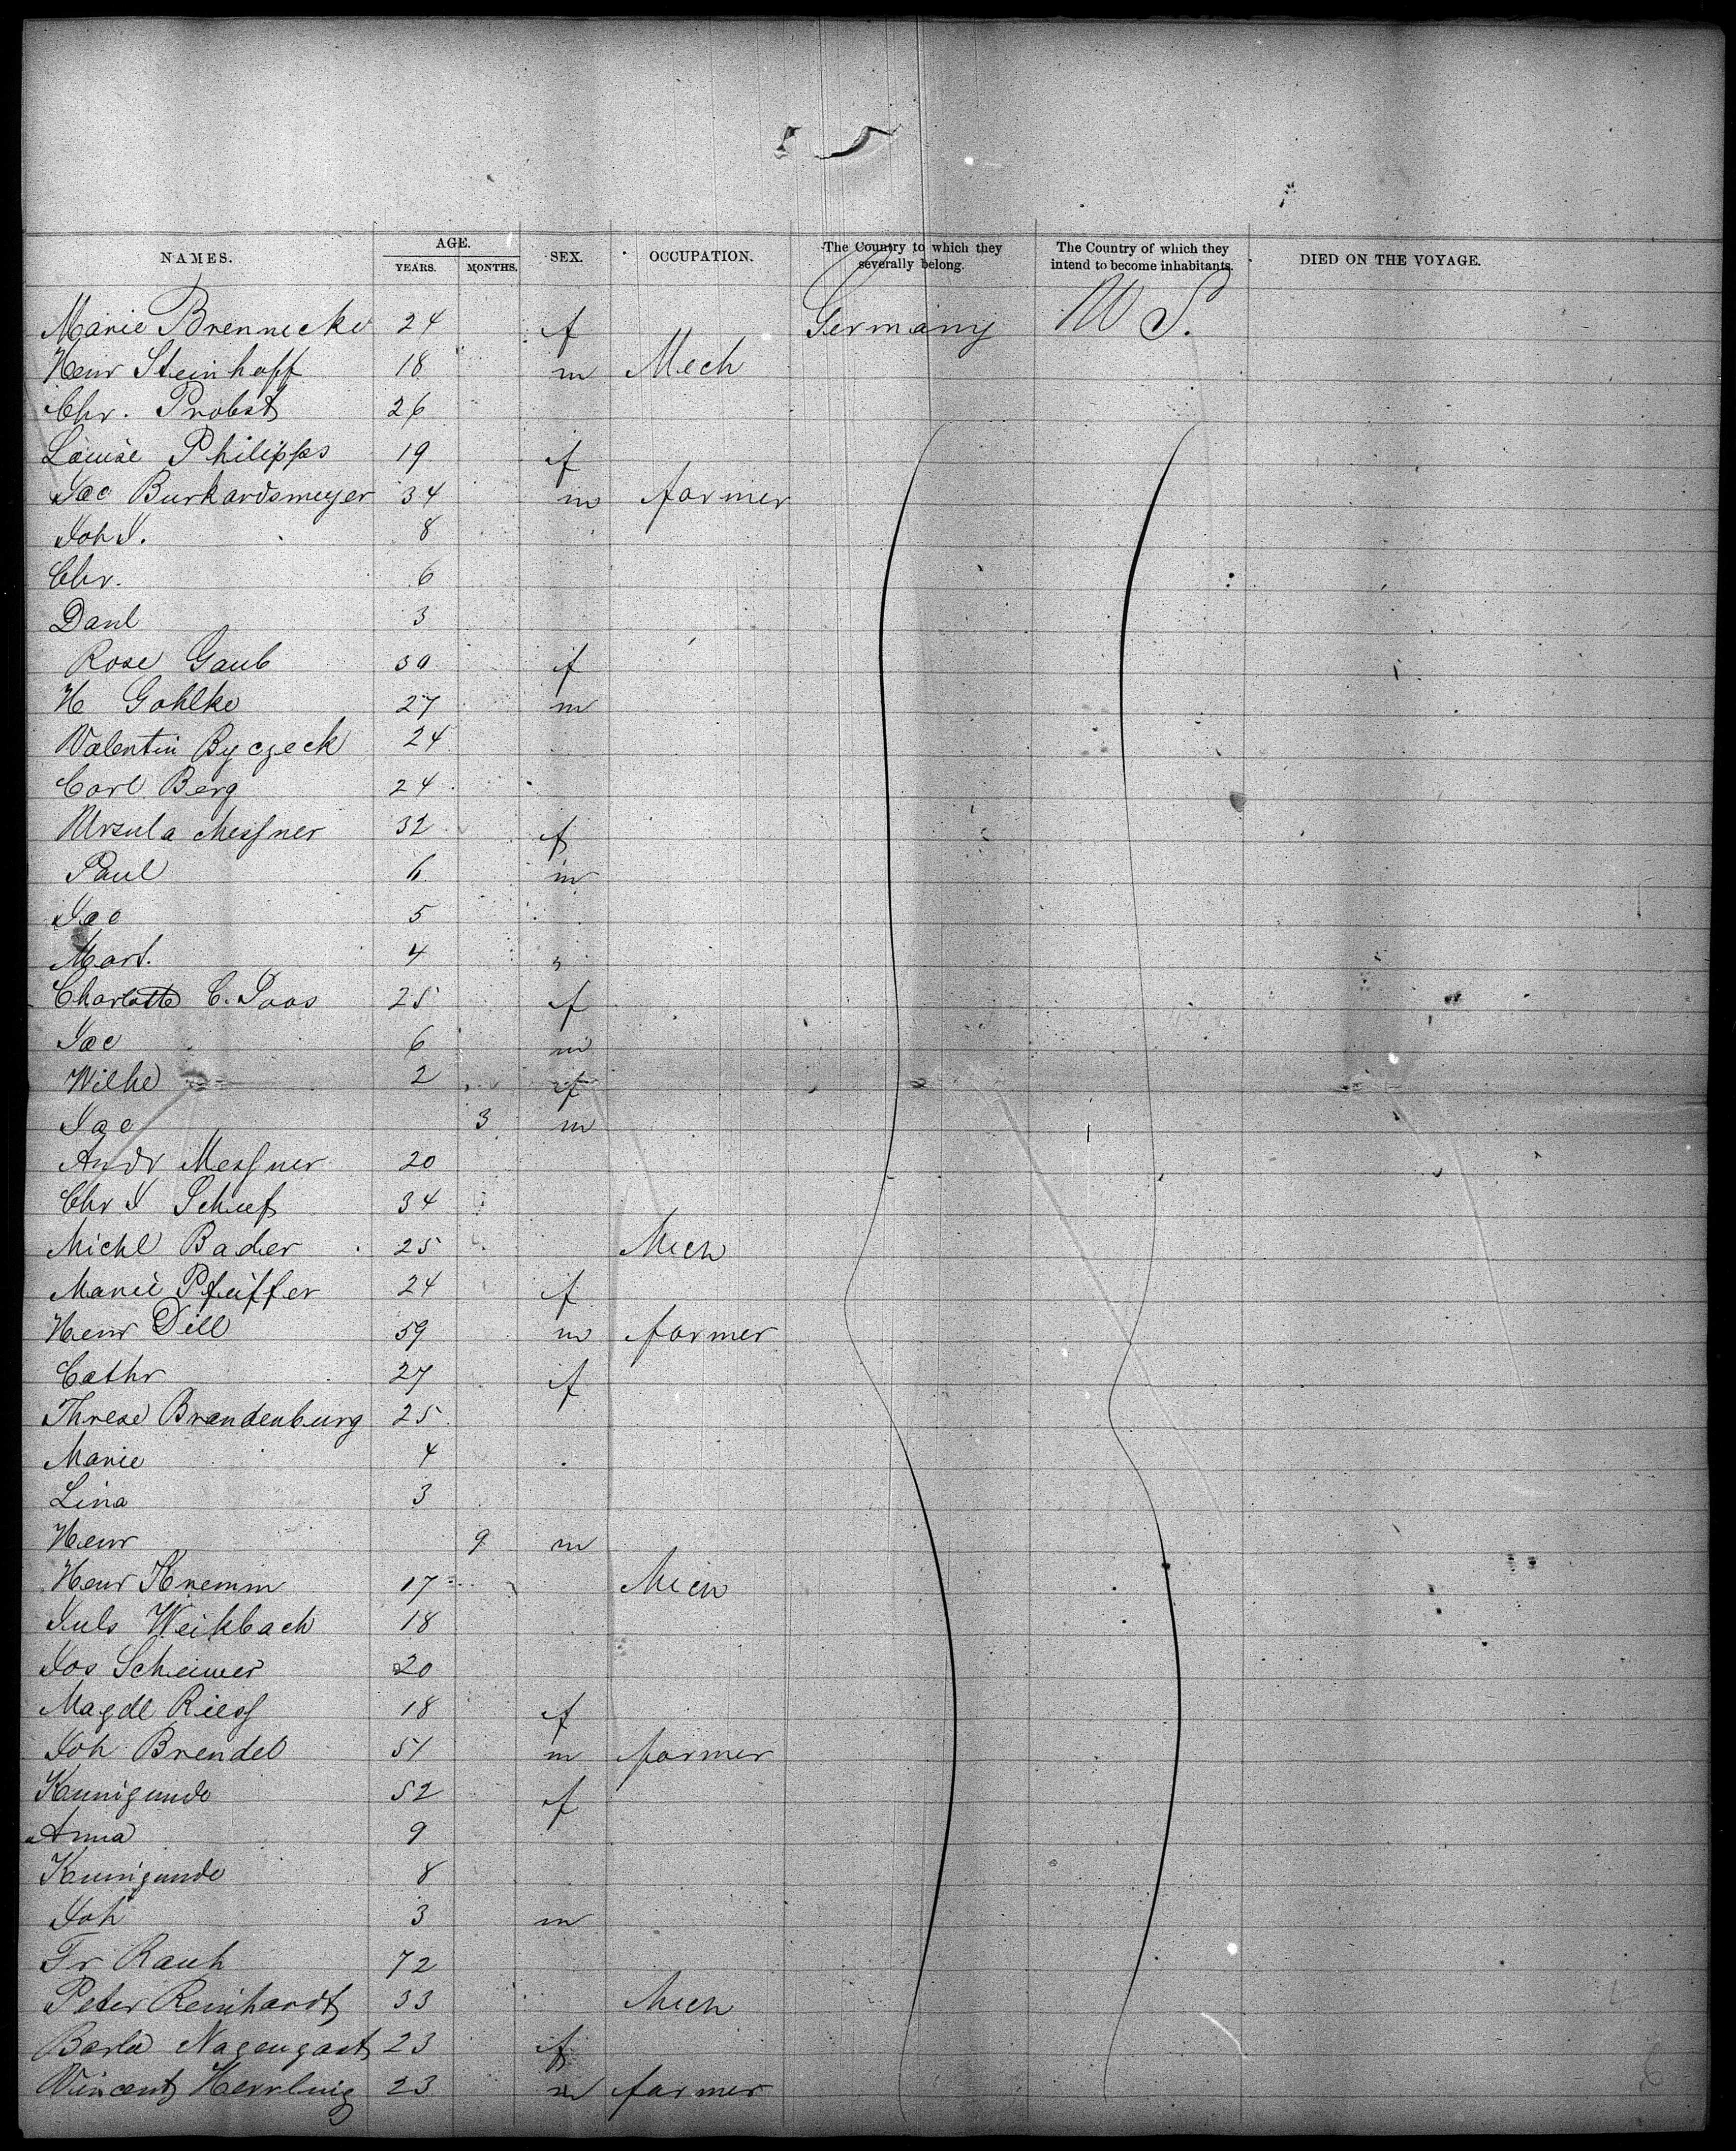 NAMES. AGE. YEARS. MONTHS. SEX. OCCUPATION. The Country to which they severally belong. The Country of which they intend to become inhabitants. DIED ON THE VOYAGE.
Marie Brennecke 24 f Germany U S.
Henr Steinhoff 18 m Mech
Chr. Probst 26
Louise Philipps 19 f
Jac Burkardsmeyer 34 m farmer
Joh J. 8
Chr. 6
Danl 3
Rose Gaub 30 f
H Gohlke 27 m
Valentin Byczeck 24
Carl Berg 24
Ursula Messner 32 f
Paul 6 m
Jac 5
Mart. 4
Charlotte C. 25 f
Jac 6 m
Wilhe 2 f
Jac 3 m
Andr Messner 20
Chr J 34
Michl Bader 25 Mech
Marie Pfeiffer 24 f
Henr Dill 59 m farmer
Cathr 27 f
Threse Brandenburg 25
Marie 4
Lina 3
Henr 9 m
Henr Kremm 17 Mech
Juls Weikbach 18
Jos 20
Magdl Riess 18 f
Joh Brendel 51 m farmer
Kunigunde 52 f
Anna 9
Kunigunde 8
Joh 3 m
Fr Rauh 72
Peter Reinhardt 33 Mech
Barba Nagengast 23 f
Vincent Herrling 23 m farmer